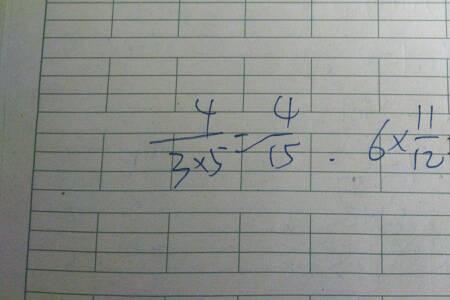 4/(3×5) = 4/15 . 6×11/12